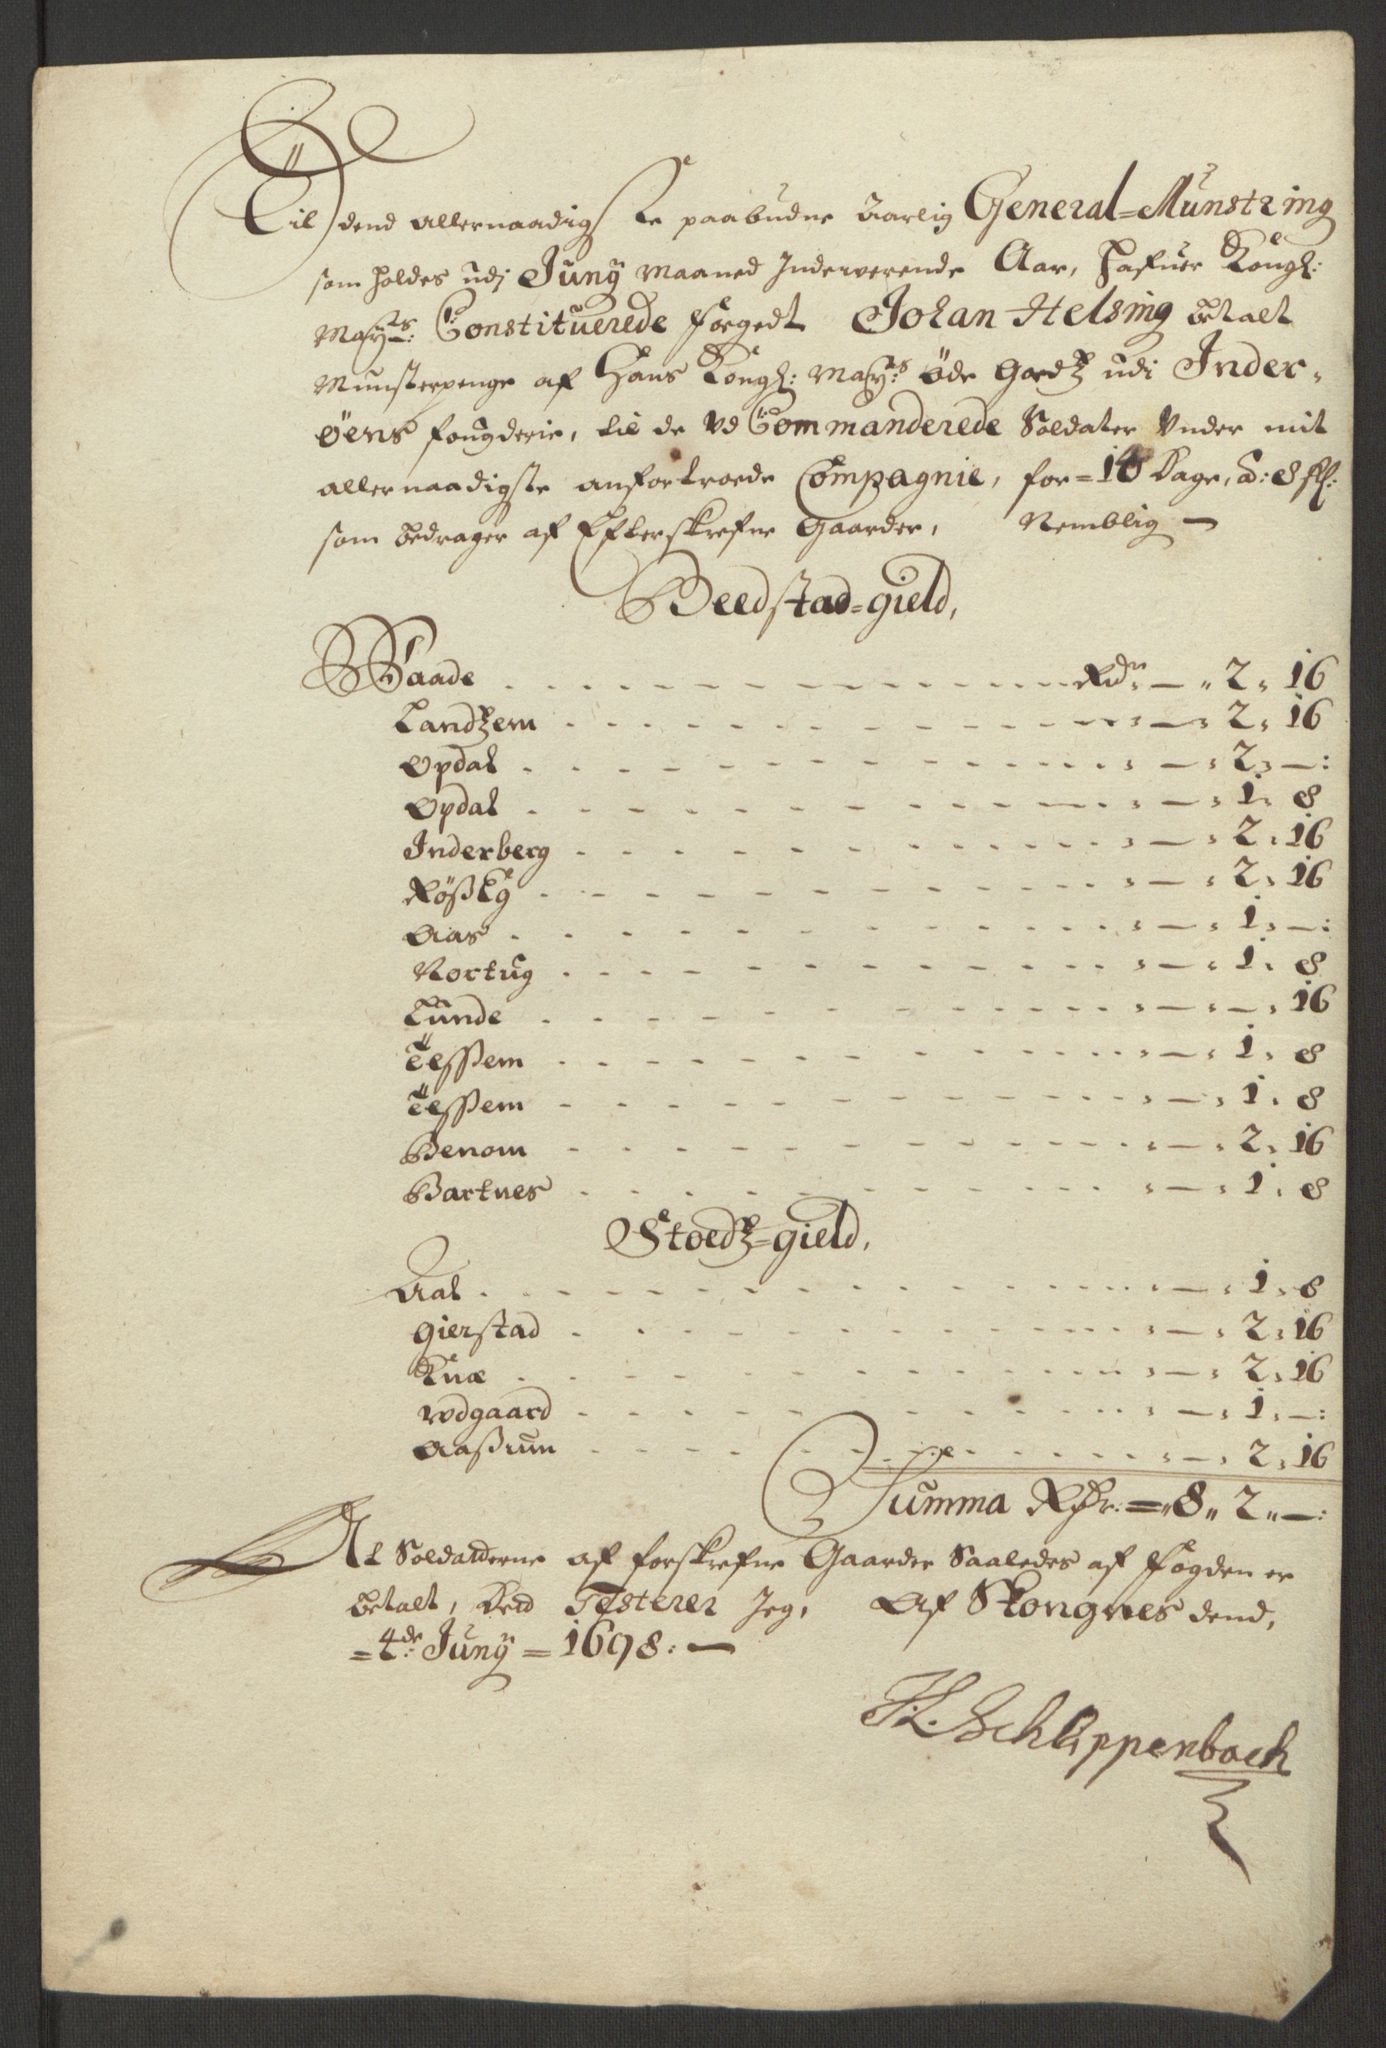 Til dend allernaadigste paabudne Aarlig General=Munstring
som holdes udj Juny Maaned Inderverende Aar, hafuer Kongl:
Mayts: Constituerede fogedt Johan Helsing betalt
Munsterpenge af Hans Kongl: Mayts: Öde Goedtz udi Inder-
öens fougderie, til de ud Commanderede Soldater Under mit
allernaadigste anfortroede Compagnie, for = 10 Dage, á: 8 sk:
som bedrager af Efterskrefne Gaarder, Nemblig —
Beedstad=gield,
Vaade Rdr — „ 2, 16
Landtzem — , 2, 16
Opdal — , 2, — :
Opdal — , 1, 8
Inderberg — , 2, 16
Rößeg — , 2, 16
Aas — , 1, — :
Nortug — , 1, 8
Lunde — , — , 16
Tessem — , 1, 8
Tessem — , 1, 8
Benom — , 2, 16
Bartnes — , 1, 8
Stoedtz=gield,
Aal — , 1, 8
Gierstad — , 2, 16
Qvæ — , 2, 16
Wdgaard — , 1, — :
Aaßum — , 2, 16
Summa Rdr: = „ 8 „ 2 „ — :
At Soldatterne af forskrefne Gaarder Saaledes af fogden er
betalt, Det Testerer Jeg, Af Skongnes dend,
= 4de: Juny = 1698: —
Schlippenbach